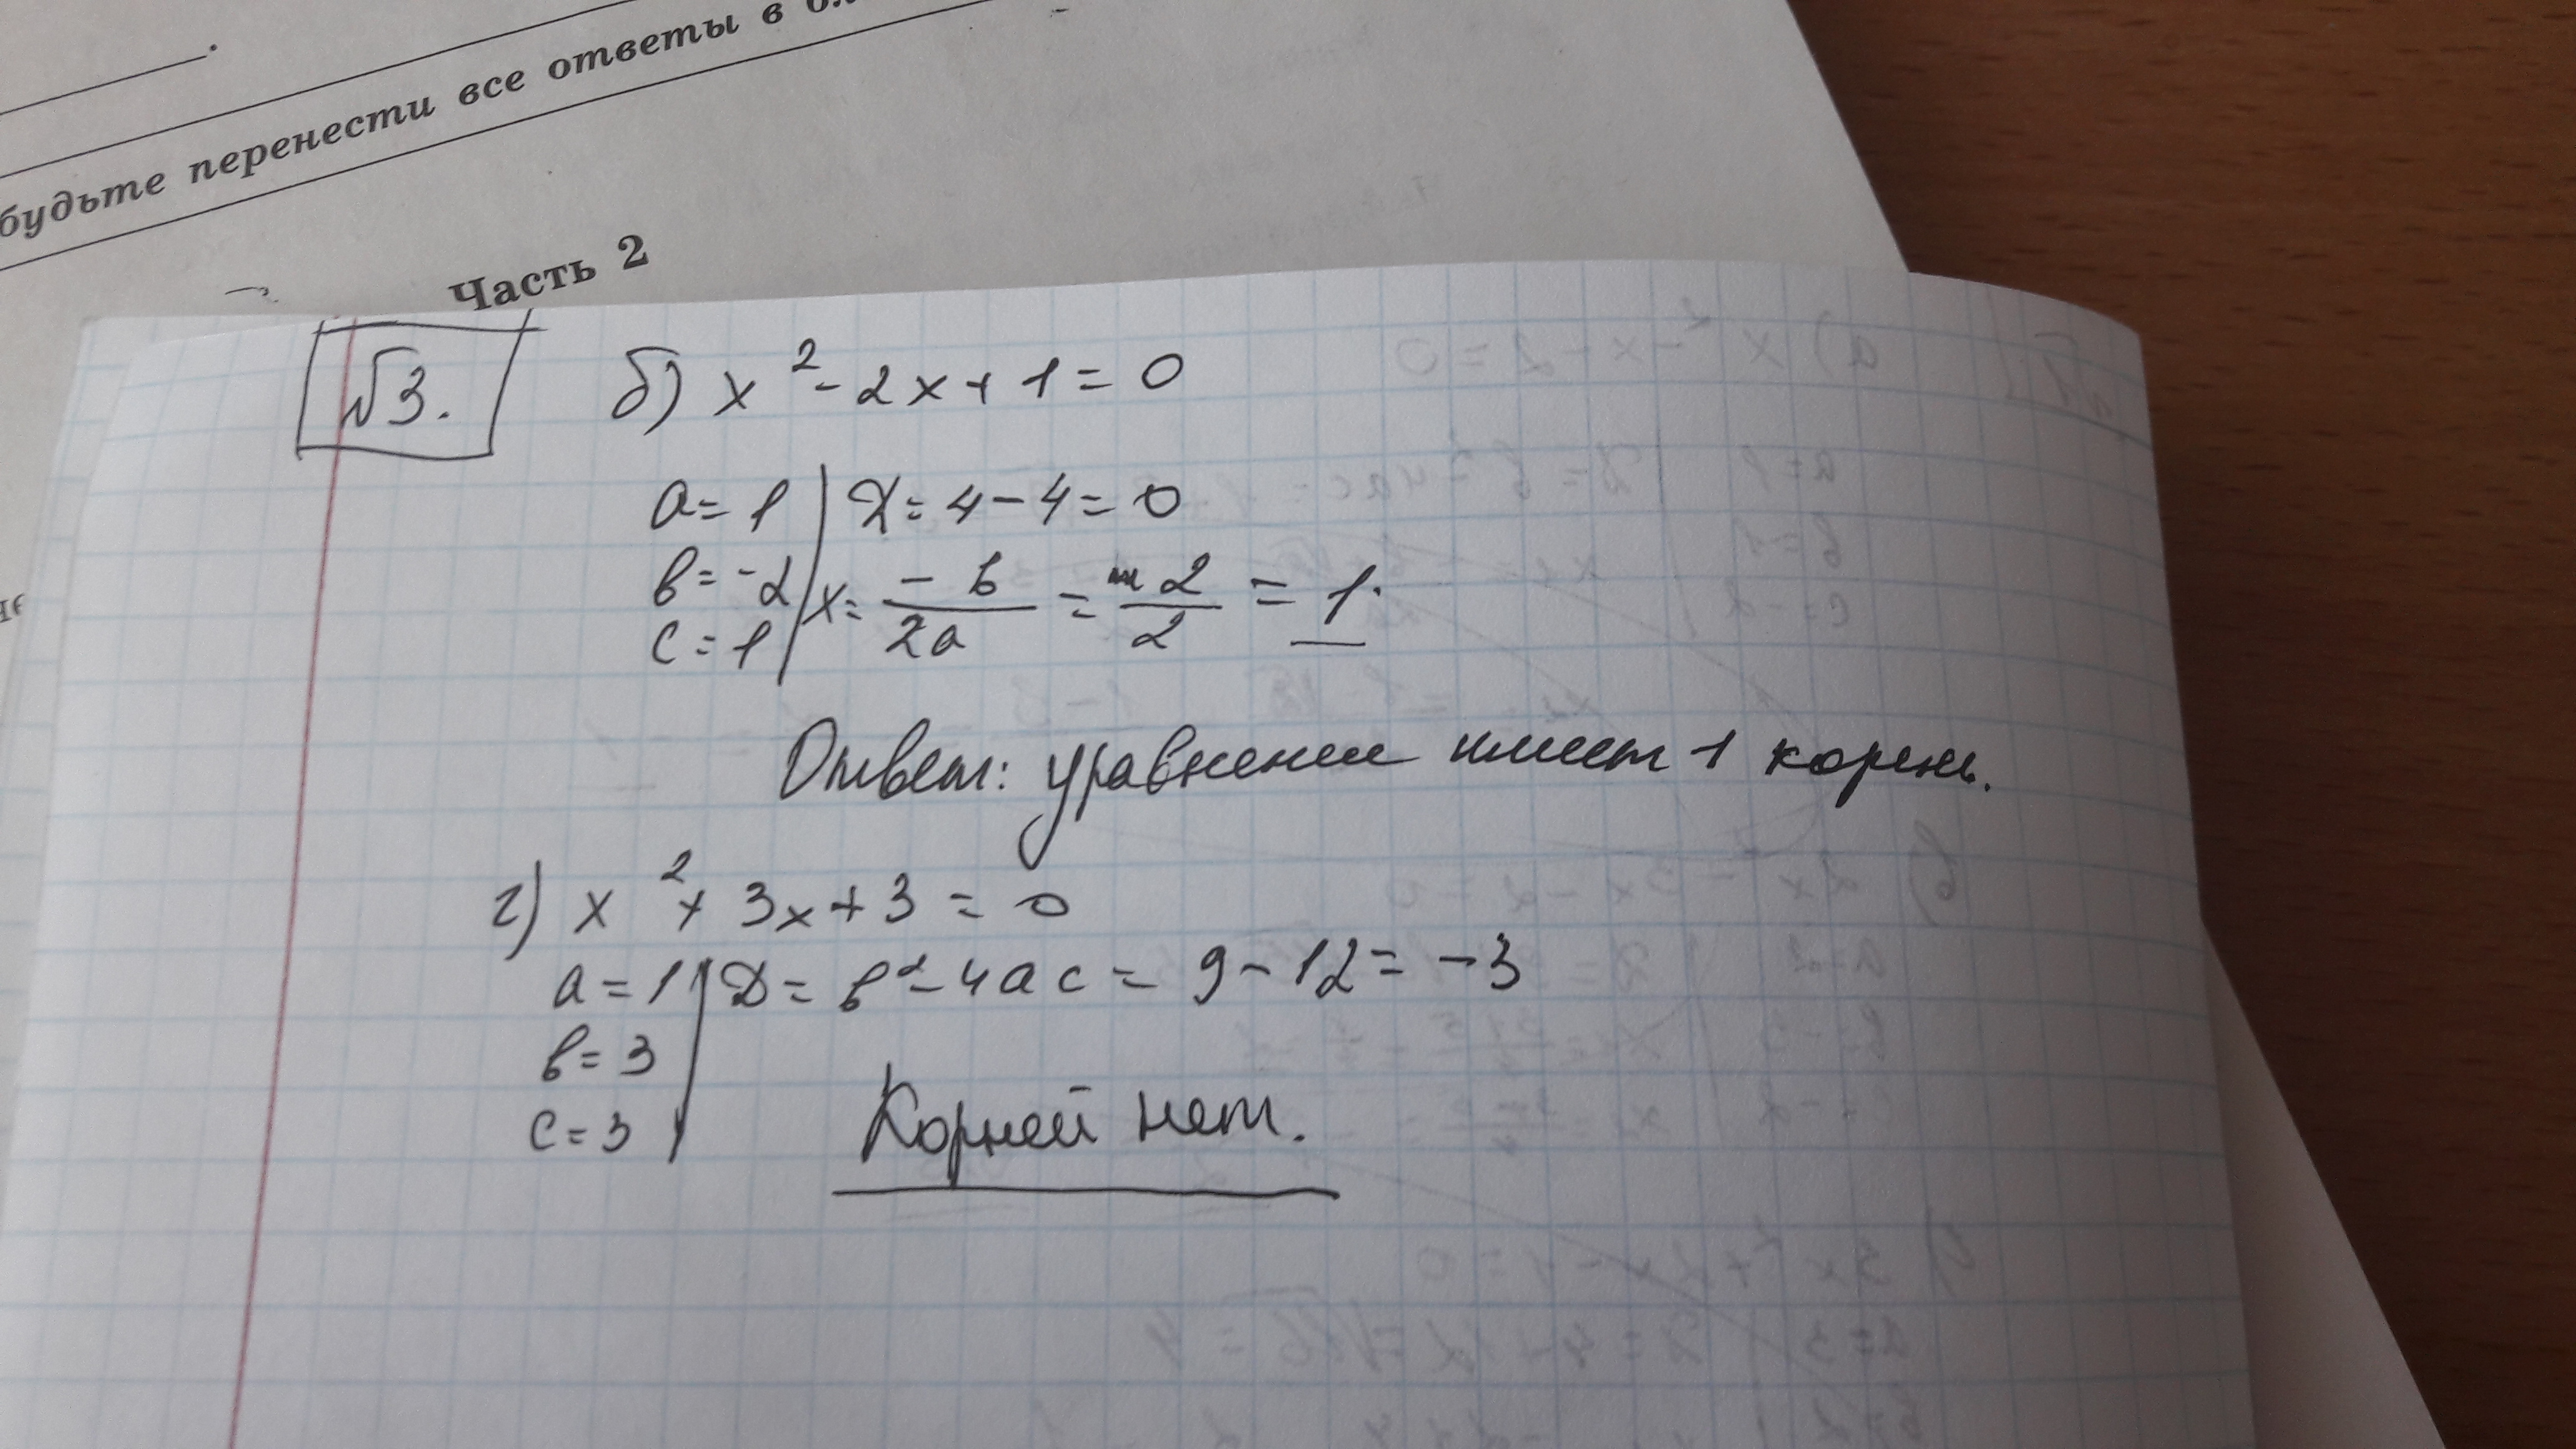 будьте перенести все ответы в
Часть 2
№3. б) x² - 2x + 1 = 0
a = 1 | D = 4 - 4 = 0
b = -2 | x = -b/2a = 2/2 = 1.
c = 1
Ответ: уравнение имеет 1 корень.
г) x² + 3x + 3 = 0
a = 1 | D = b² - 4ac = 9 - 12 = -3
b = 3
c = 3
Корней нет.